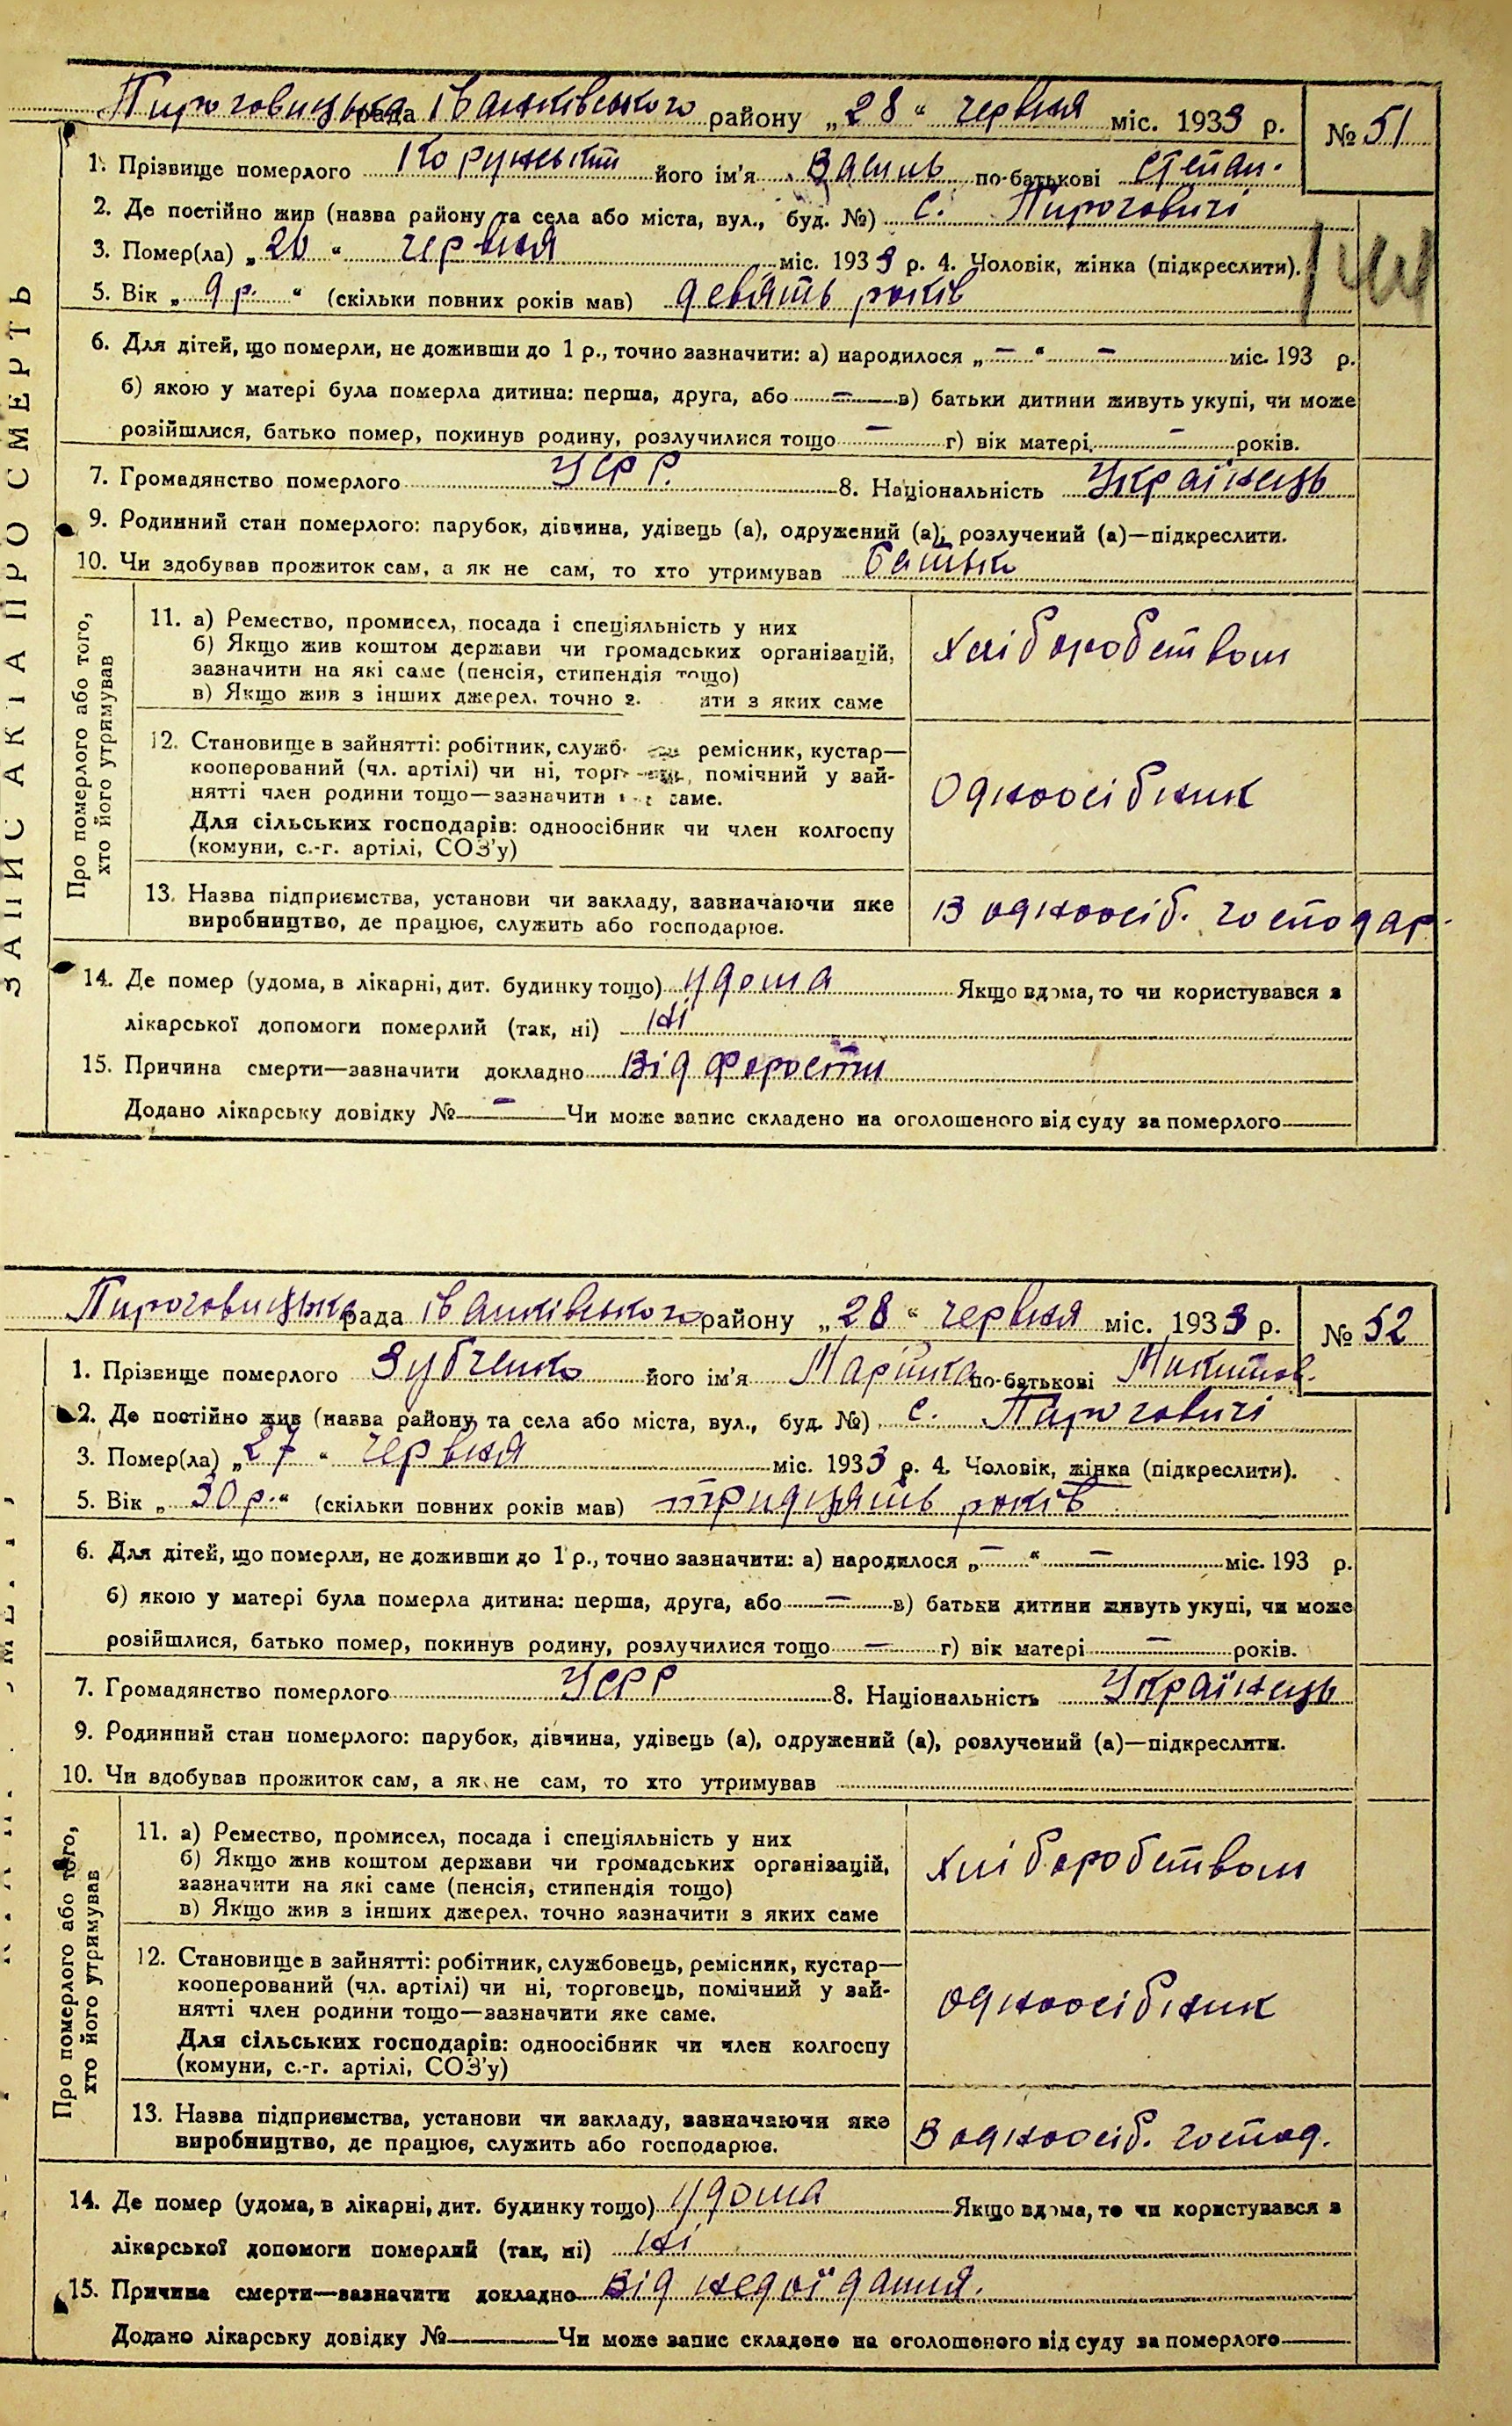 Пироговицька рада Іванківського району „28“ червня міс. 1933 р. № 51
1. Прізвище померлого його ім'я Василь по-батькові Степан.
2. Де постійно жив (назва району та села або міста, вул., буд. №) с. Пироговичі
3. Помер(ла) „26“ червня міс. 1933 р. 4. Чоловік, жінка (підкреслити).
144
5. Вік „9 р.“ (скільки повних років мав) девять років
6. Для дітей, що померли, не доживши до 1 р., точно зазначити: а) народилося „—“ — міс. 193 р.
б) якою у матері була померла дитина: перша, друга, або — в) батьки дитини живуть укупі, чи може
розійшлися, батько помер, покинув родину, розлучилися тощо — г) вік матері — років.
7. Громадянство померлого УСРР. 8. Національність Українець
9. Родинний стан померлого: парубок, дівчина, удівець (а), одружений (а), розлучений (а)—підкреслити.
10. Чи здобував прожиток сам, а як не сам, то хто утримував Батько
ЗАПИС АКТА ПРО СМЕРТЬ
Про померлого або того, хто його утримував
11. а) Ремество, промисел, посада і спеціяльність у них
б) Якщо жив коштом держави чи громадських організацій,
зазначити на які саме (пенсія, стипендія тощо)
в) Якщо жив з інших джерел, точно з ити з яких саме
хліборобством
12. Становище в зайнятті: робітник, служб ремісник, кустар—
кооперований (чл. артілі) чи ні, торг , помічний у зай-
нятті член родини тощо—зазначити саме.
Для сільських господарів: одноосібник чи член колгоспу
(комуни, с.-г. артілі, СОЗ'у)
Одноосібник
13. Назва підприємства, установи чи закладу, зазначаючи яке
виробництво, де працює, служить або господарює.
В одноосіб. господар.
14. Де помер (удома, в лікарні, дит. будинку тощо) удома Якщо вдома, то чи користувався з
лікарської допомоги померлий (так, ні) ні
15. Причина смерти—зазначити докладно Від
Додано лікарську довідку № — Чи може запис складено на оголошеного від суду за померлого
Пироговицька рада Іванківського району „28“ червня міс. 1933 р. № 52
1. Прізвище померлого Зубченко його ім'я Марійка по-батькові Микитов.
2. Де постійно жив (назва району та села або міста, вул., буд. №) с. Пироговичі
3. Помер(ла) „27“ червня міс. 1933 р. 4. Чоловік, жінка (підкреслити).
5. Вік „30 р.“ (скільки повних років мав) тридцять років
6. Для дітей, що померли, не доживши до 1 р., точно зазначити: а) народилося „—“ — міс. 193 р.
б) якою у матері була померла дитина: перша, друга, або — в) батьки дитини живуть укупі, чи може
розійшлися, батько помер, покинув родину, розлучилися тощо — г) вік матері — років.
7. Громадянство померлого УСРР 8. Національність Українець
9. Родинний стан померлого: парубок, дівчина, удівець (а), одружений (а), розлучений (а)—підкреслити.
10. Чи здобував прожиток сам, а як не сам, то хто утримував
Про померлого або того, хто його утримував
11. а) Ремество, промисел, посада і спеціяльність у них
б) Якщо жив коштом держави чи громадських організацій,
зазначити на які саме (пенсія, стипендія тощо)
в) Якщо жив з інших джерел, точно зазначити з яких саме
хліборобством
12. Становище в зайнятті: робітник, службовець, ремісник, кустар—
кооперований (чл. артілі) чи ні, торговець, помічний у зай-
нятті член родини тощо—зазначити яке саме.
Для сільських господарів: одноосібник чи член колгоспу
(комуни, с.-г. артілі, СОЗ'у)
одноосібник
13. Назва підприємства, установи чи закладу, зазначаючи яке
виробництво, де працює, служить або господарює.
В одноосіб. господ.
14. Де помер (удома, в лікарні, дит. будинку тощо) удома Якщо вдома, то чи користувався з
лікарської допомоги померлий (так, ні) ні
15. Причина смерти—зазначити докладно від недоїдання.
Додано лікарську довідку № Чи може запис складено на оголошеного від суду за померлого